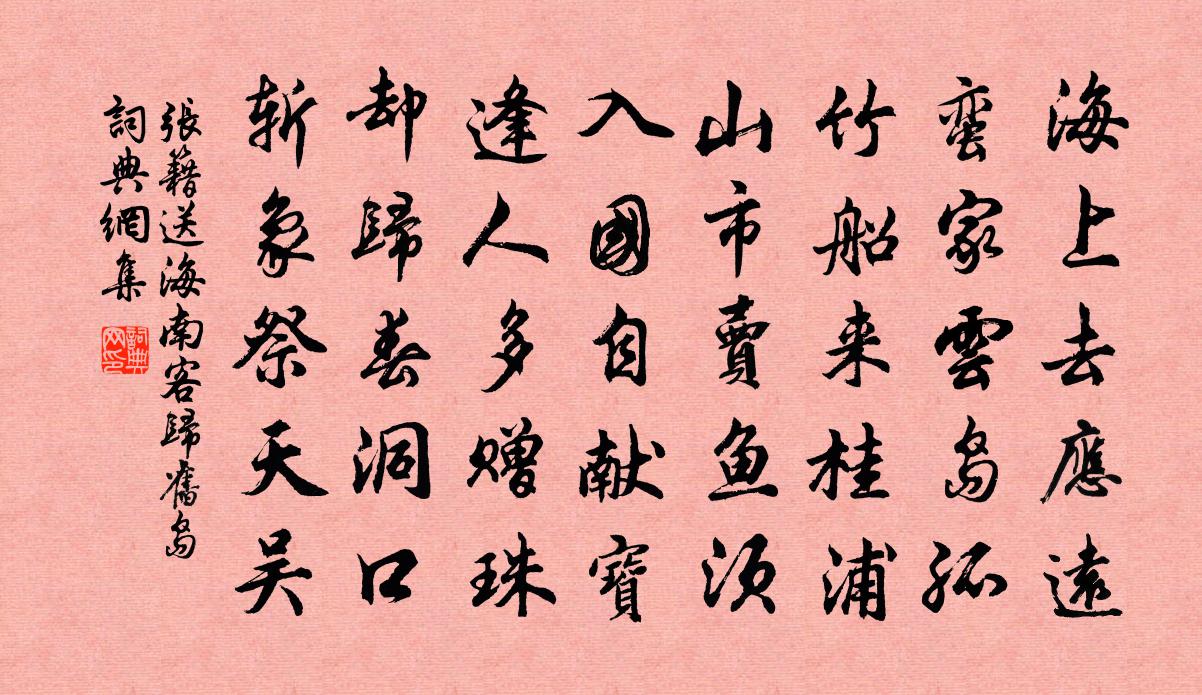 海上去應遠
蛮家雲島孤
竹船来桂浦
山市賣魚須
入國自献寶
逢人多赠珠
却歸春洞口
斩象祭天吴
張籍送海南客歸舊島
詞典網集
詞典网印